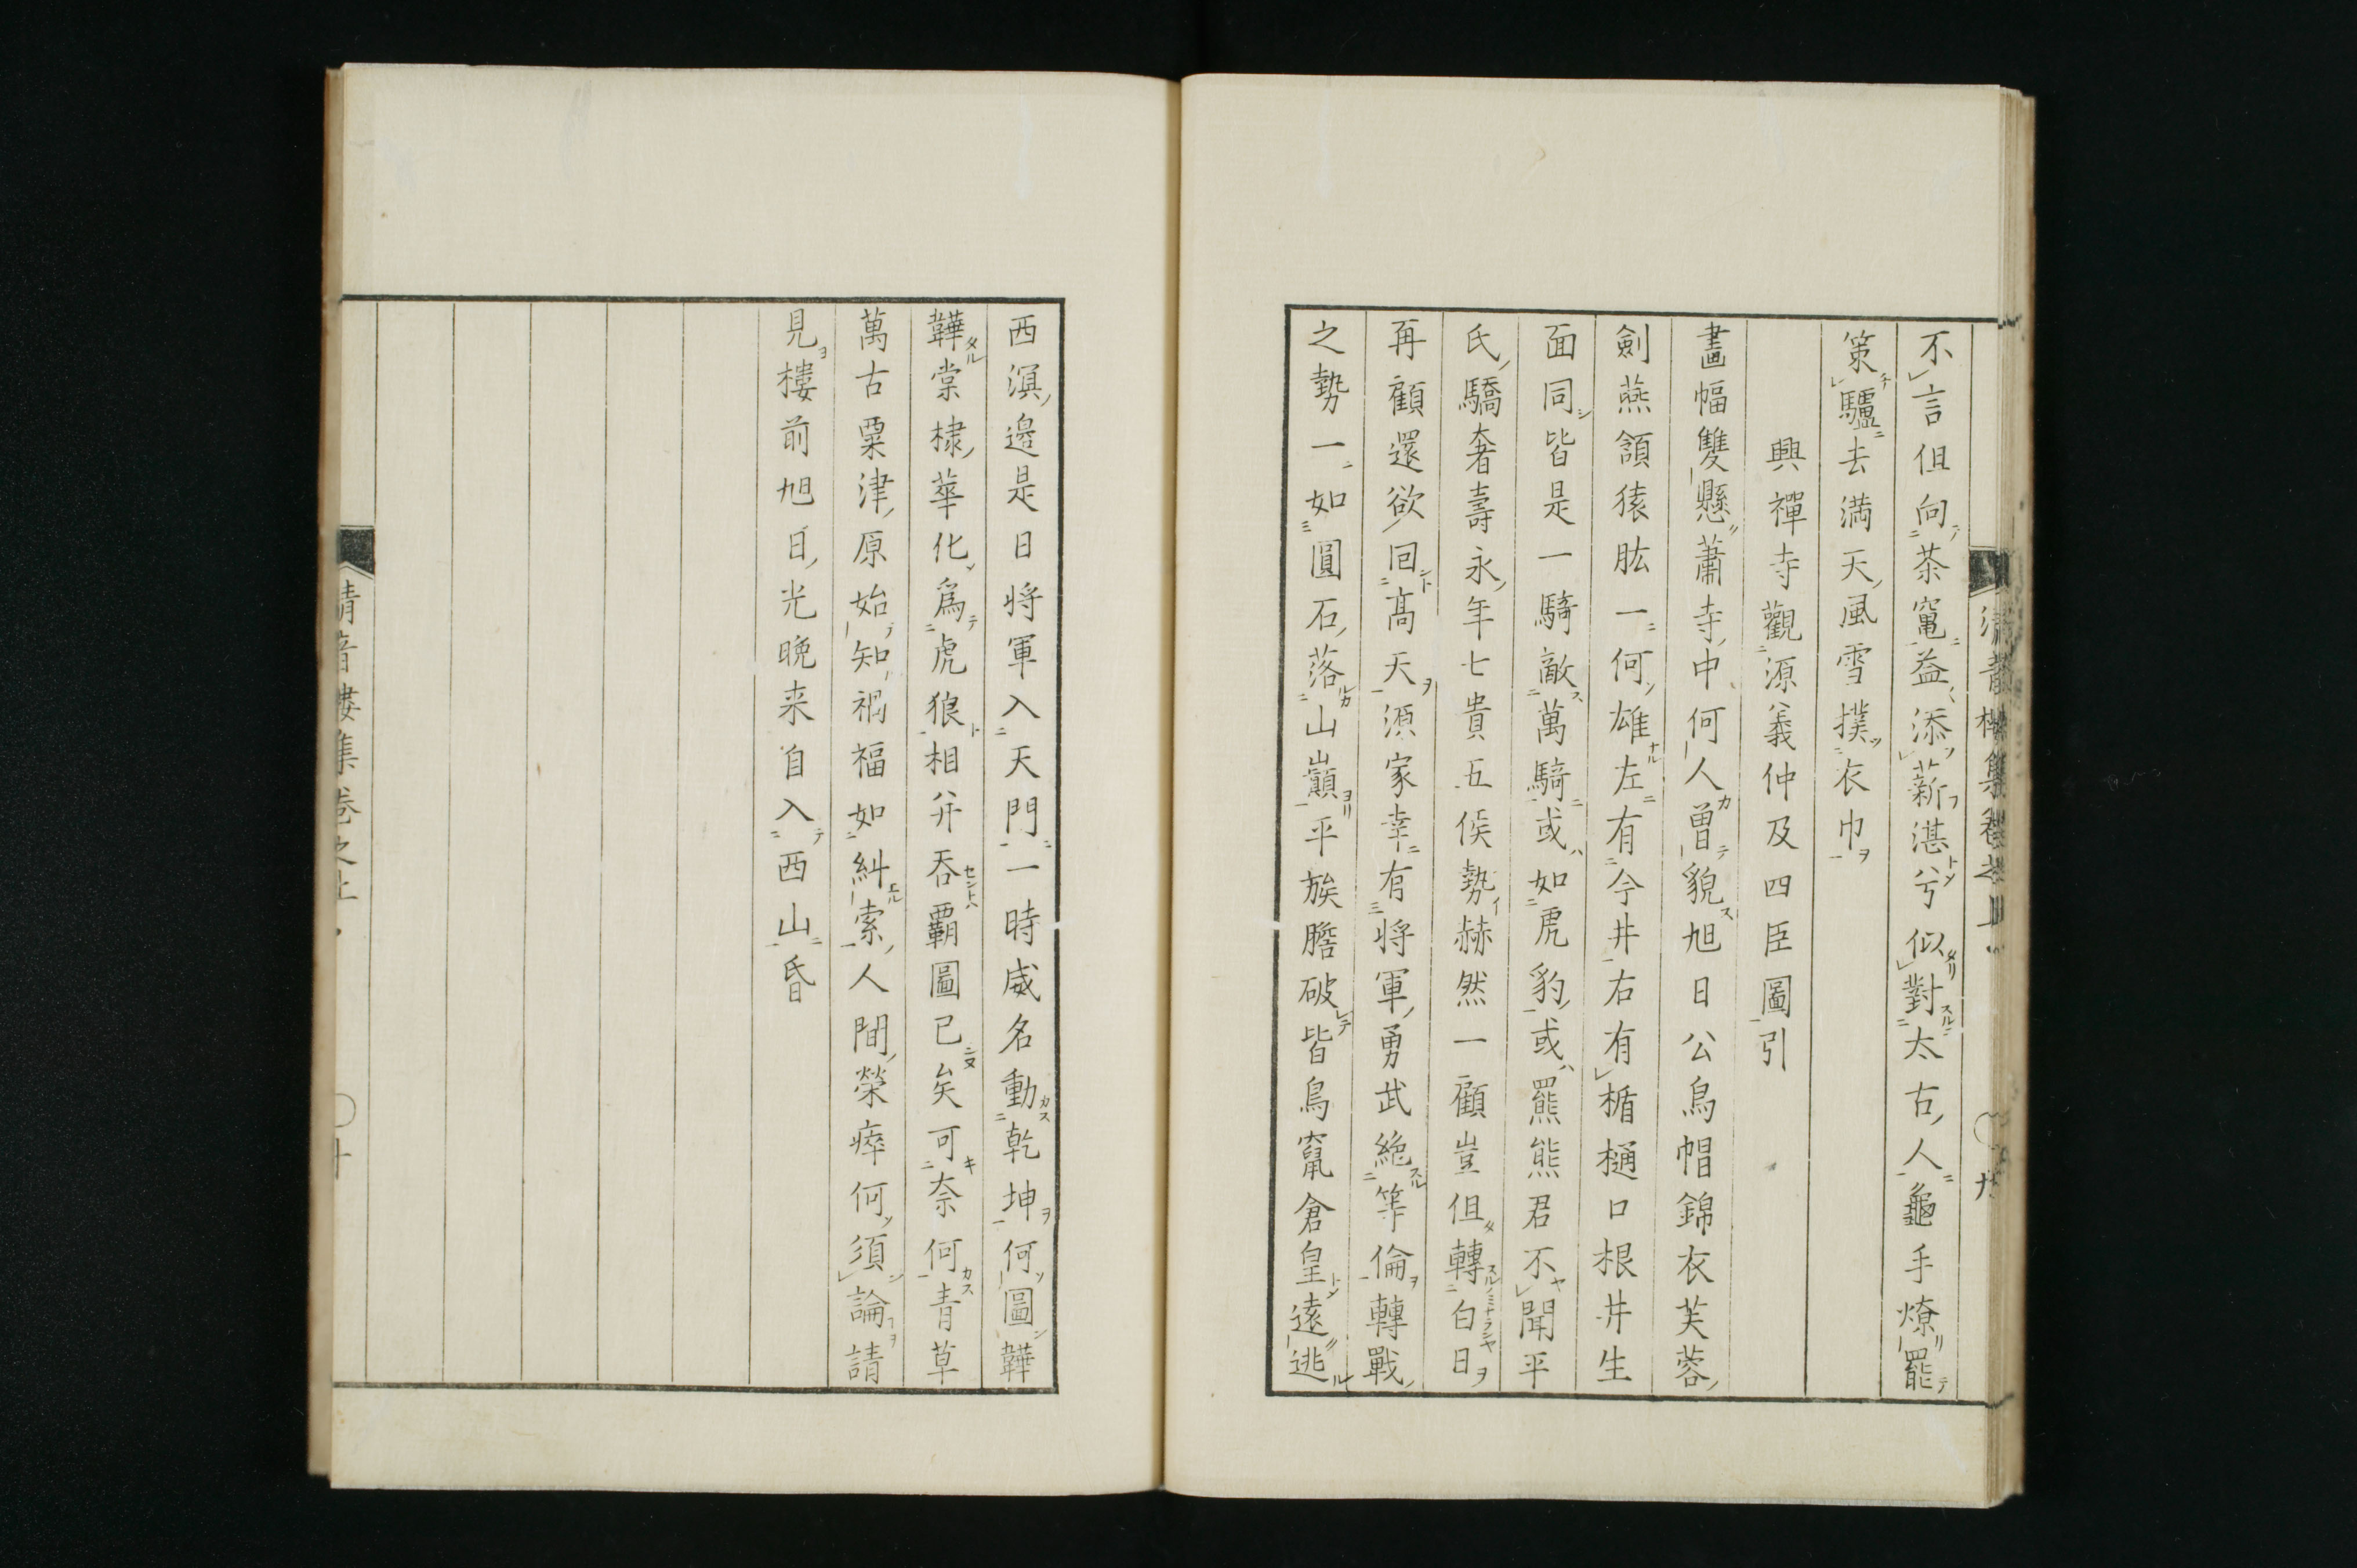 不言但向茶竃益添薪湛兮似對太古人龜手燎罷
策驢去満天風雪撲衣巾
興禪寺觀源義仲及四臣圖引
畫幅雙懸蕭寺中何人曽貌旭日公烏帽錦衣芙蓉
劍燕頷猿肱一何雄左有今井右有楯樋口根井生
面同皆是一騎敵萬騎或如虎豹或羆熊君不聞平
氏驕奢壽永年七貴五侯勢赫然一顧豈但轉白日
再顧還欲回髙天源家幸有将軍勇武絶等倫轉戰
之勢一如圓石落山巓平族膽破皆鳥竄倉皇遠逃
西溟邊是日将軍入天門一時威名動乾坤何圖韡
韡棠棣華化爲虎狼相并吞覇圖已矣可奈何青草
萬古粟津原始知禍福如糾索人間榮瘁何須論請
見樓前旭日光晩来自入西山昏
清音樓集卷之上
十